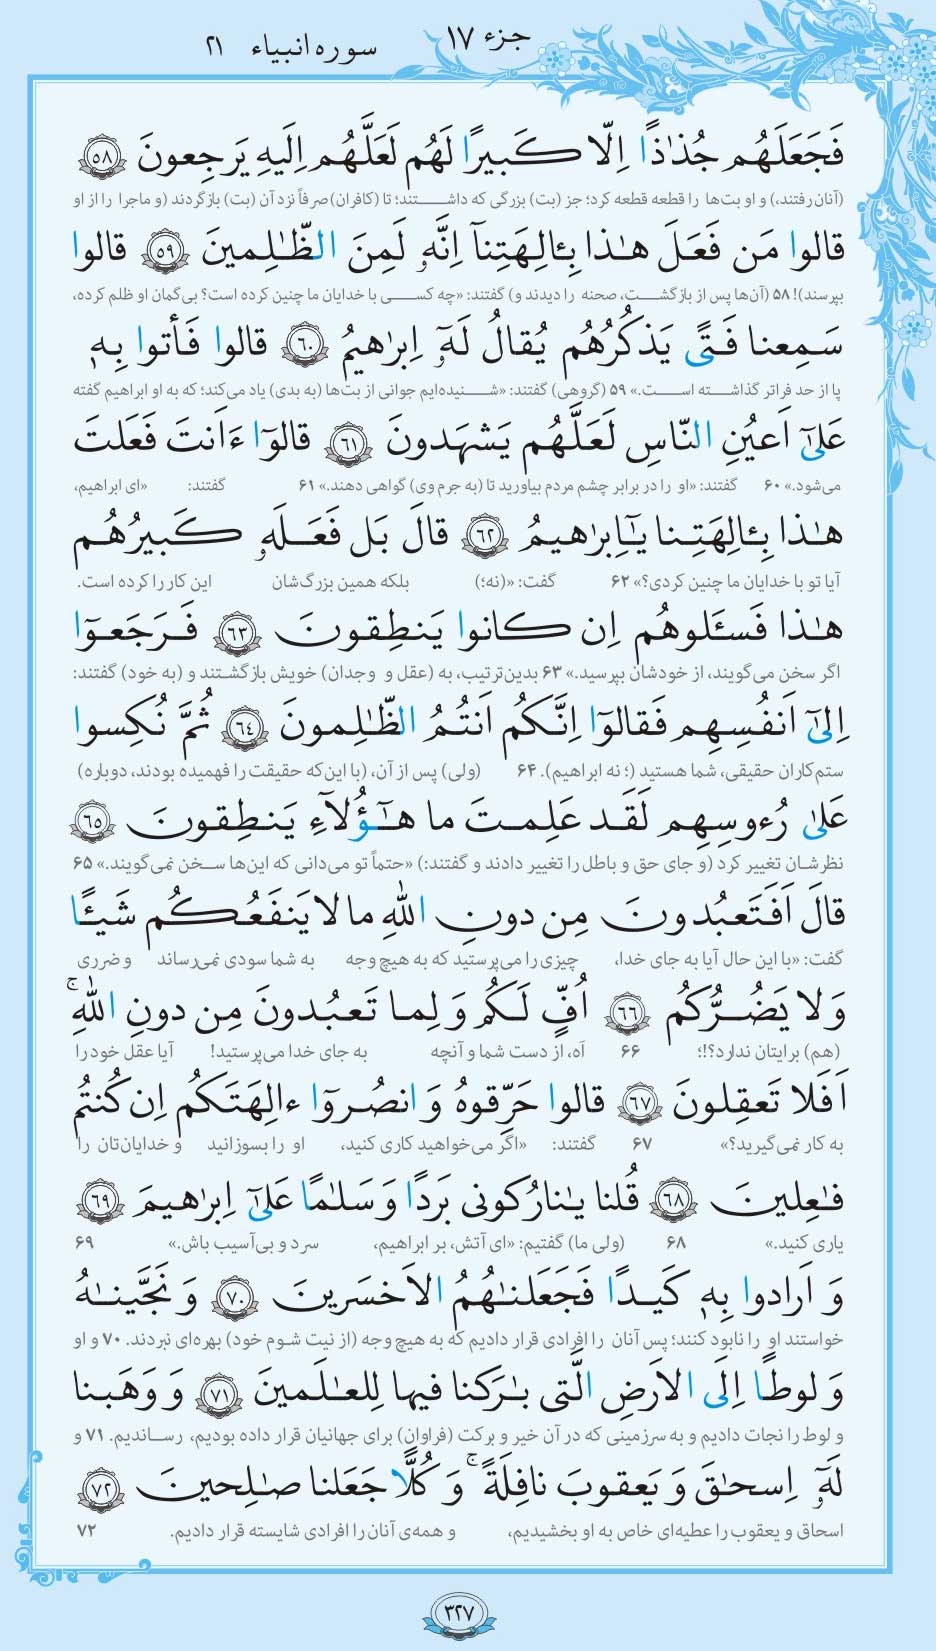 جزء ۱۷
سوره انبیاء ۲۱
فَجَعَلَهُم جُذٰذًا اِلّا كَبيرًا لَهُم لَعَلَّهُم اِلَيهِ يَرجِعونَ ﴿٥٨﴾
(آنان رفتند،) و او بت‌ها را قطعه قطعه کرد؛ جز (بت) بزرگی که داشتند؛ تا (کافران) صرفاً نزد آن (بت) بازگردند (و ماجرا را از او
قالوا مَن فَعَلَ هٰذا بِـٔالِهَتِنآ اِنَّهٗ لَمِنَ الظّٰلِمينَ ﴿٥٩﴾ قالوا
بپرسند)! ۵۸ (آن‌ها پس از بازگشت، صحنه را دیدند و) گفتند: «چه کسی با خدایان ما چنین کرده است؟ بی‌گمان او ظلم کرده،
سَمِعنا فَتًى يَذكُرُهُم يُقالُ لَهٗٓ اِبرٰهيمُ ﴿٦٠﴾ قالوا فَأتوا بِهٖ
پا از حد فراتر گذاشته است.» ۵۹ (گروهی) گفتند: «شنیده‌ایم جوانی از بت‌ها (به بدی) یاد می‌کند؛ که به او ابراهیم گفته
عَلىٰٓ اَعيُنِ النّاسِ لَعَلَّهُم يَشهَدونَ ﴿٦١﴾ قالوٓا ءَاَنتَ فَعَلتَ
می‌شود.» ۶۰ گفتند: «او را در برابر چشم مردم بیاورید تا (به جرم وی) گواهی دهند.» ۶۱ گفتند: «ای ابراهیم،
هٰذا بِـٔالِهَتِنا يٰٓاِبرٰهيمُ ﴿٦٢﴾ قالَ بَل فَعَلَهٗ كَبيرُهُم
آیا تو با خدایان ما چنین کردی؟» ۶۲ گفت: «(نه؛) بلکه همین بزرگ‌شان این کار را کرده است.
هٰذا فَسـَٔلوهُم اِن كانوا يَنطِقونَ ﴿٦٣﴾ فَرَجَعوٓا
اگر سخن می‌گویند، از خودشان بپرسید.» ۶۳ بدین‌ترتیب، به (عقل و وجدان) خویش بازگشتند و (به خود) گفتند:
اِلىٰٓ اَنفُسِهِم فَقالوٓا اِنَّكُم اَنتُمُ الظّٰلِمونَ ﴿٦٤﴾ ثُمَّ نُكِسوا
ستم‌کاران حقیقی، شما هستید (؛ نه ابراهیم). ۶۴ (ولی) پس از آن، (با این‌که حقیقت را فهمیده بودند، دوباره)
عَلىٰ رُءوسِهِم لَقَد عَلِمتَ ما هٰٓؤُلآءِ يَنطِقونَ ﴿٦٥﴾
نظرشان تغییر کرد (و جای حق و باطل را تغییر دادند و گفتند:) «حتماً تو می‌دانی که این‌ها سخن نمی‌گویند.» ۶۵
قالَ اَفَتَعبُدونَ مِن دونِ اللّٰهِ ما لا يَنفَعُكُم شَيـًٔا
گفت: «با این حال آیا به جای خدا، چیزی را می‌پرستید که به هیچ وجه به شما سودی نمی‌رساند و ضرری
وَ لا يَضُرُّكُم ﴿٦٦﴾ اُفٍّ لَكُم وَ لِما تَعبُدونَ مِن دونِ اللّٰهِ ۚ
(هم) برایتان ندارد؟!؛ ۶۶ اَه، از دست شما و آنچه به جای خدا می‌پرستید! آیا عقل خود را
اَفَلا تَعقِلونَ ﴿٦٧﴾ قالوا حَرِّقوهُ وَ انصُروٓا ءالِهَتَكُم اِن كُنتُم
به کار نمی‌گیرید؟» ۶۷ گفتند: «اگر می‌خواهید کاری کنید، او را بسوزانید و خدایان‌تان را
فٰعِلينَ ﴿٦٨﴾ قُلنا يٰنارُ كونى بَردًا وَ سَلٰمًا عَلىٰٓ اِبرٰهيمَ ﴿٦٩﴾
یاری کنید.» ۶۸ (ولی ما) گفتیم: «ای آتش، بر ابراهیم، سرد و بی‌آسیب باش.» ۶۹
وَ اَرادوا بِهٖ كَيدًا فَجَعَلنٰهُمُ الاَخسَرينَ ﴿٧٠﴾ وَ نَجَّينٰهُ
خواستند او را نابود کنند؛ پس آنان را افرادی قرار دادیم که به هیچ وجه (از نیت شوم خود) بهره‌ای نبردند. ۷۰ و او
وَ لوطًا اِلَى الاَرضِ الَّتى بٰرَكنا فيها لِلعٰلَمينَ ﴿٧١﴾ وَ وَهَبنا
و لوط را نجات دادیم و به سرزمینی که در آن خیر و برکت (فراوان) برای جهانیان قرار داده بودیم، رساندیم. ۷۱ و
لَهٗٓ اِسحٰقَ وَ يَعقوبَ نافِلَةً ۖ وَ كُلًّا جَعَلنا صٰلِحينَ ﴿٧٢﴾
اسحاق و یعقوب را عطیه‌ای خاص به او بخشیدیم، و همه‌ی آنان را افرادی شایسته قرار دادیم. ۷۲
۳۲۷